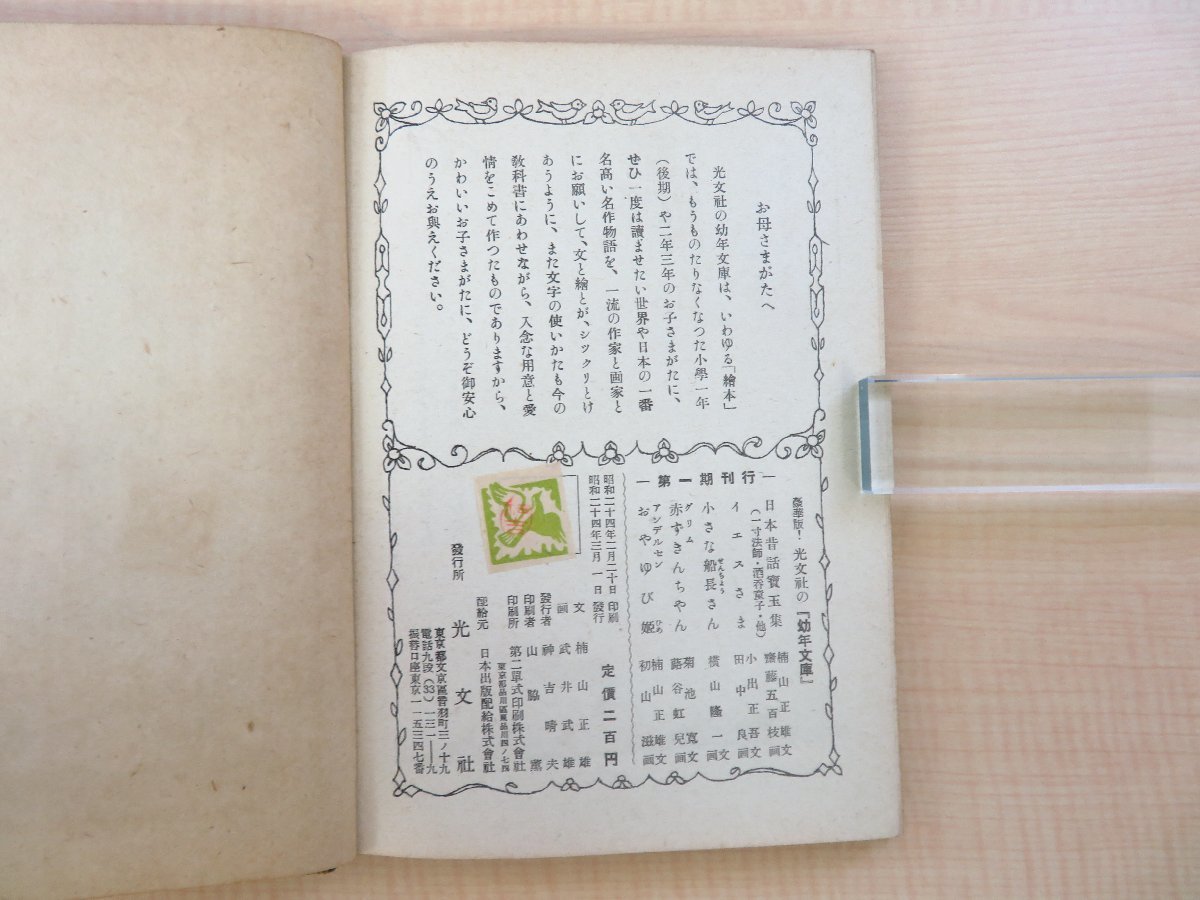 お母さまがたへ
光文社の幼年文庫は、いわゆる「繪本」
では、もうものたりなくなつた小學一年
(後期)や二年三年のお子さまがたに、
ぜひ一度は讀ませたい世界や日本の一番
名高い名作物語を、一流の作家と画家と
にお願いして、文と繪とが、シツクリとけ
あうように、また文字の使いかたも今の
教科書にあわせながら、入念な用意と愛
情をこめて作つたものでありますから、
かわいいお子さまがたに、どうぞ御安心
のうえお與えください。
豪華版! 光文社の『幼年文庫』
―第一期刊行―
日本昔話寳玉集 楠山正雄文
(一寸法師・酒呑童子・他) 齋藤五百枝画
イエスさま 小出正吾文
田中良画
小さな船長さん 横山隆一文画
せんちよう
グリム
赤ずきんちやん 菊池寛文
蕗谷虹兒画
アンデルセン
おやゆび姫 楠山正雄文
ひめ
初山滋画
昭和二十四年二月二十日 印刷
昭和二十四年三月 一日 發行
定價二百円
文 楠山正雄
画 武井武雄
發行者 神吉晴夫
印刷者 山脇薫
印刷所 第二單式印刷株式會社
東京都品川區東品川四ノ七四
配給元 日本出版配給株式會社
發行所 光文社
東京都文京區音羽町三ノ十九
電話九段(33)一三一一―九
振替口座東京一一五三四七番